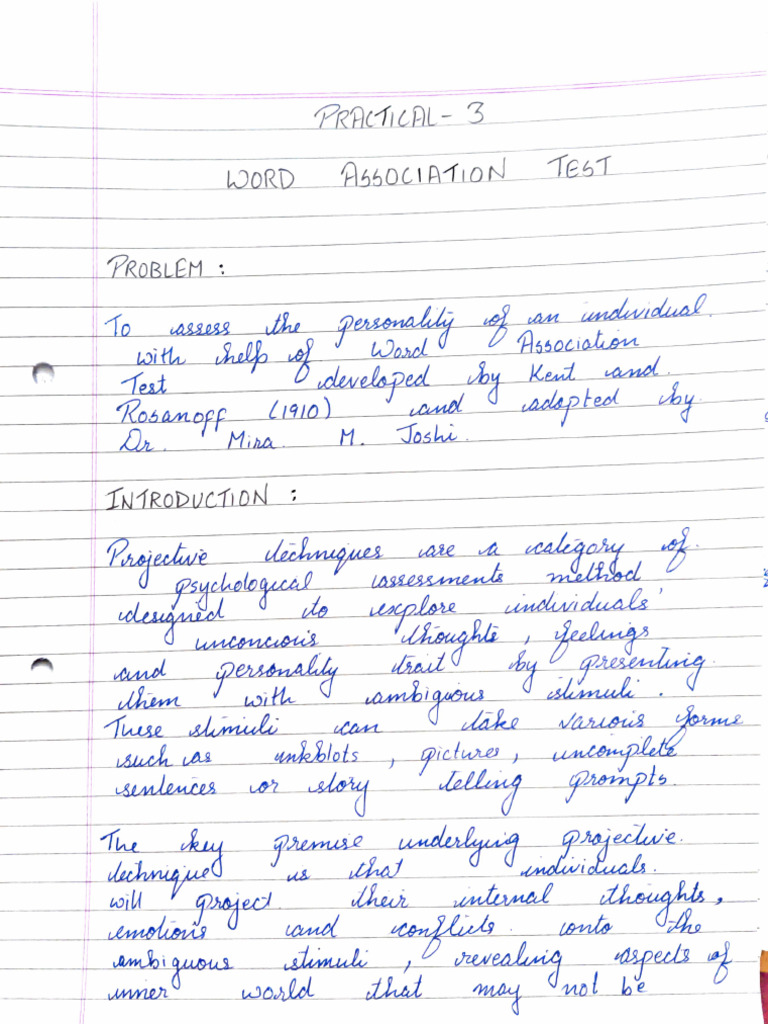 PRACTICAL - 3
WORD ASSOCIATION TEST
PROBLEM :
To assess the personality of an individual
with help of Word Association
Test developed by Kent and
Rosanoff (1910) and adapted by
Dr. Mira M. Joshi.
INTRODUCTION :
Projective techniques are a category of
psychological assessments method
designed to explore individuals'
unconcious thoughts, feelings
and personality trait by presenting
them with ambiguous stimuli.
These stimuli can take various forms
such as inkblots, pictures, uncomplete
sentences or story telling prompts.
The key premise underlying projective
technique is that individuals
will project their internal thoughts,
emotions and conflicts onto the
ambiguous stimuli, revealing aspects of
inner world that may not be